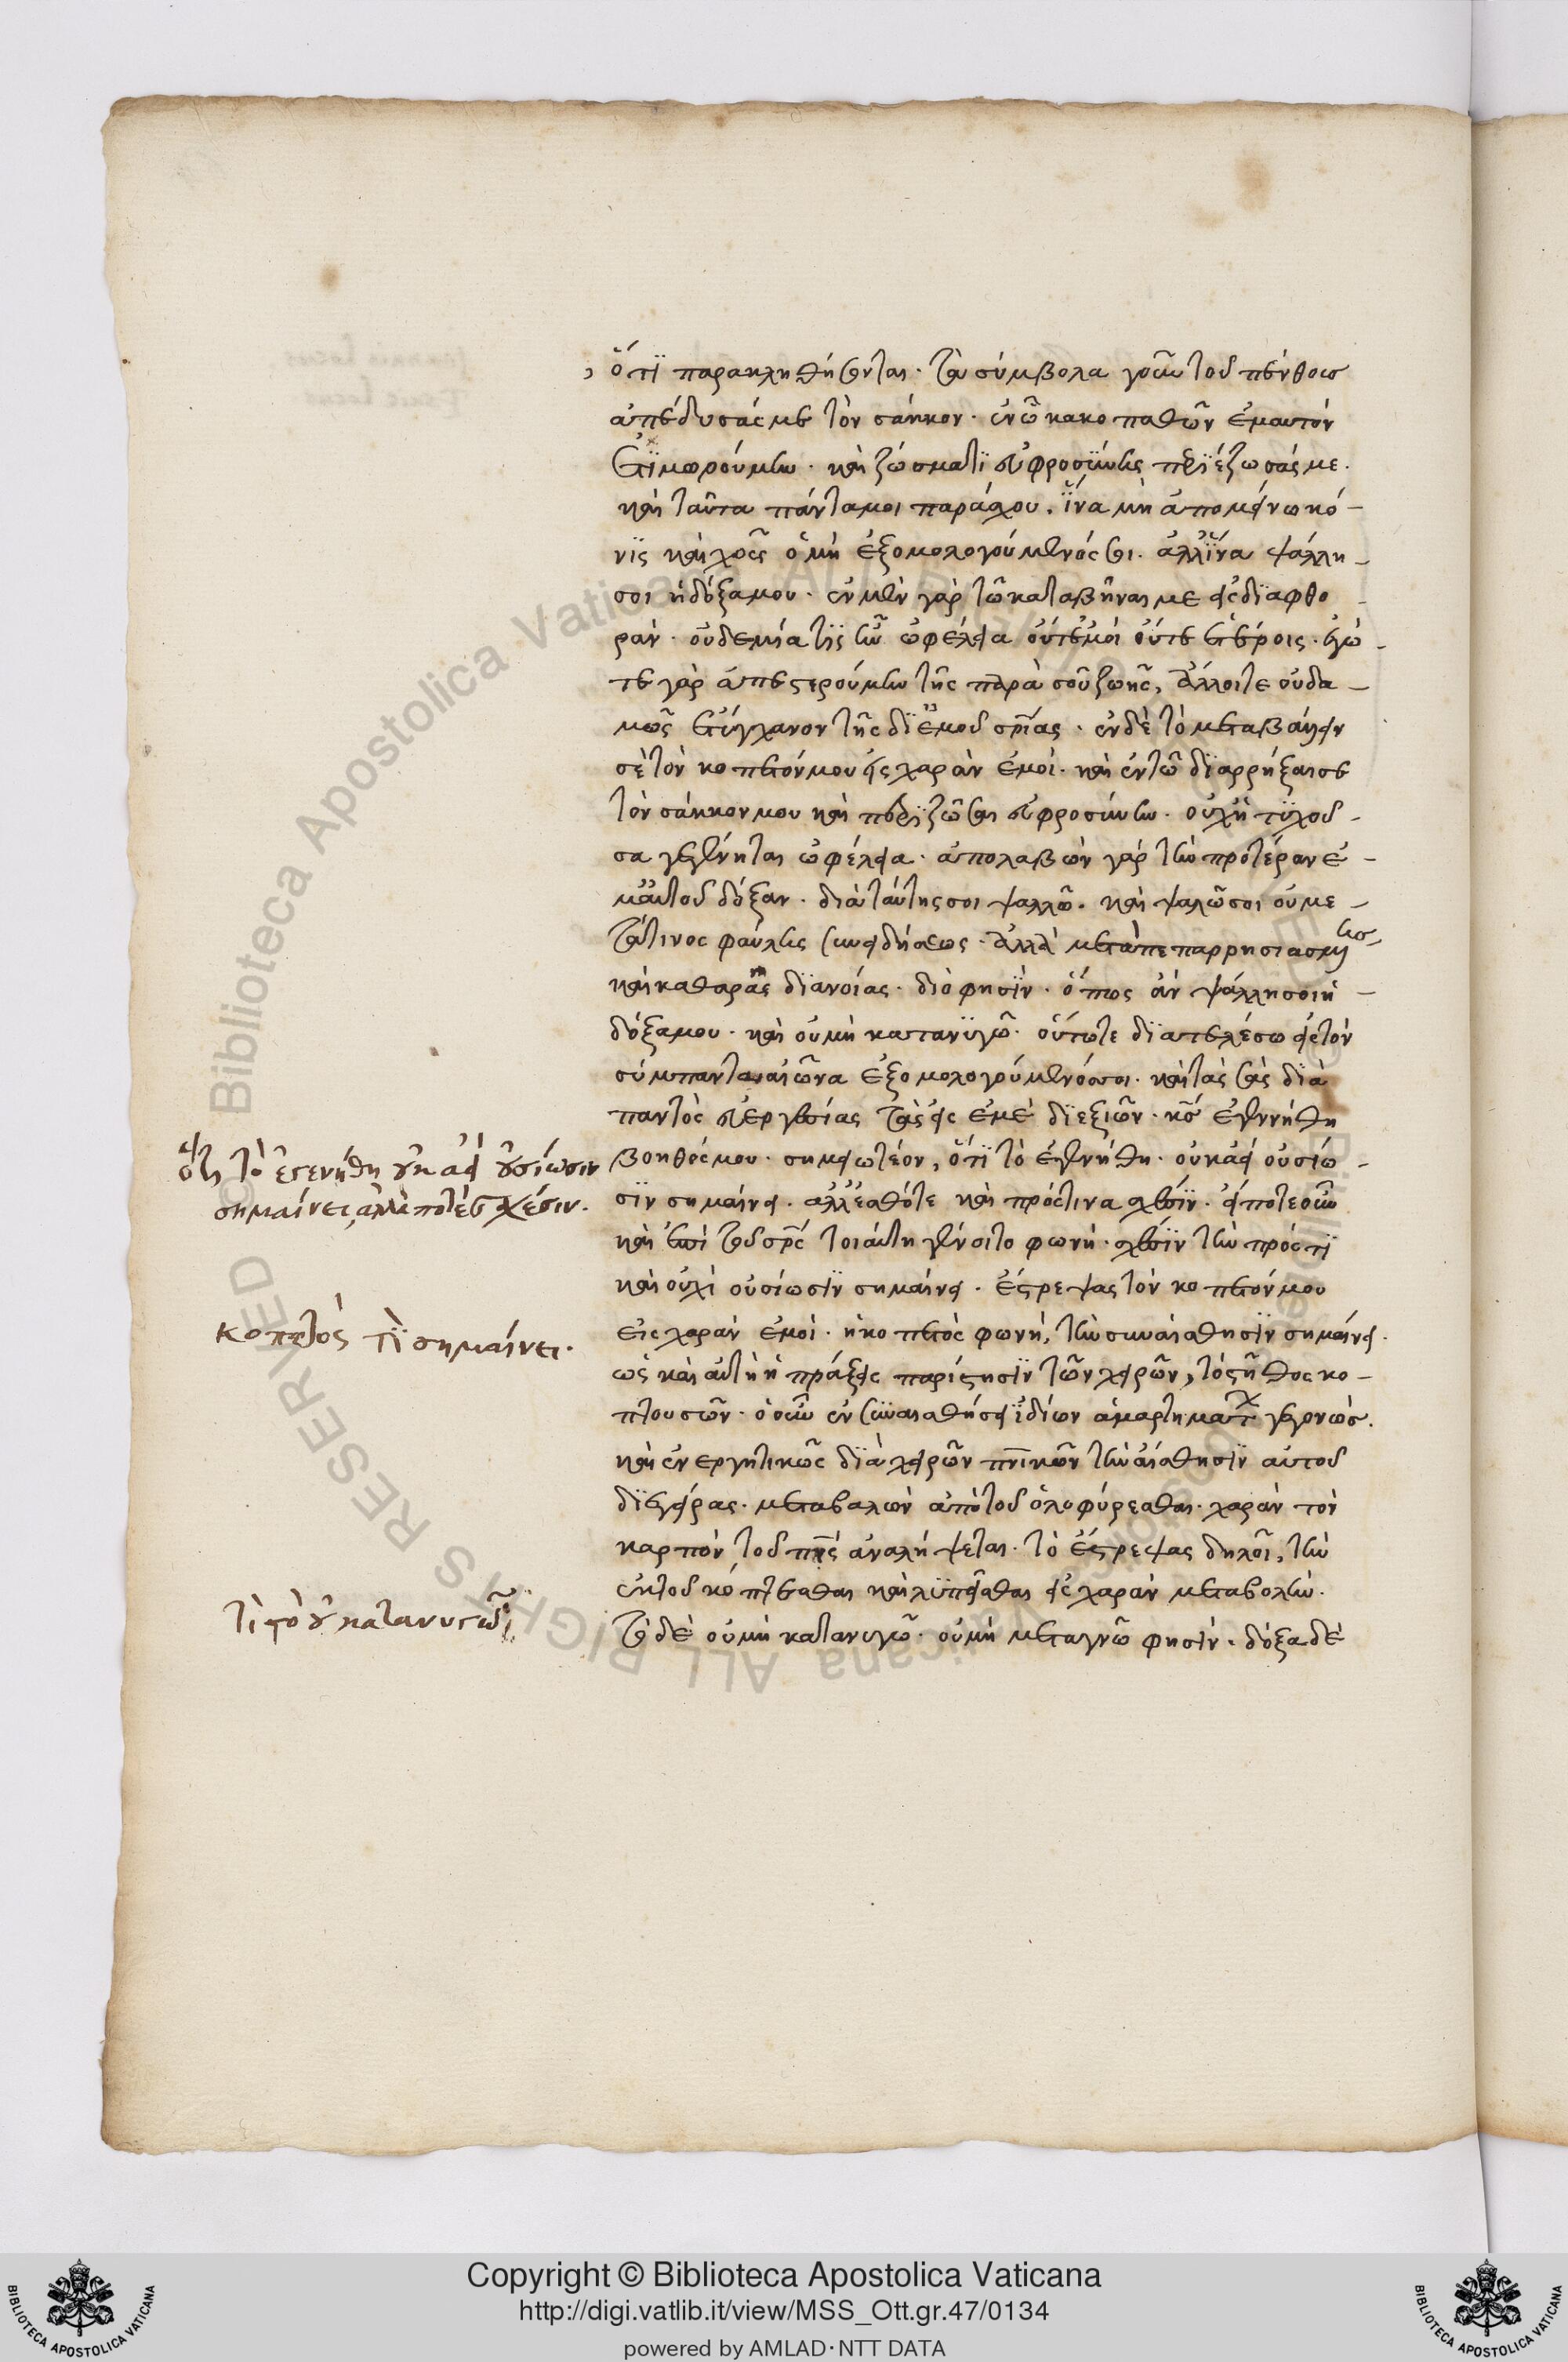 ὅτι παρακληθήσονται· τὰ σύμβολα γοῦν τοῦ πένθους
ἀπέδυσάς με τὸν σάκκον· ἐν ᾧ κακοπαθῶν ἐμαυτὸν
ἐτιμωρούμην· καὶ ζώσματι εὐφροσύνης περιέζωσάς με.
καὶ ταῦτα πάντα μοι παράσχου, ἵνα μὴ ἀπομείνω κό-
νις καὶ χοῦς ὁ μὴ ἐξομολογούμενός σοι. ἀλλ' ἵνα ψάλλη
σοι ἡ δόξα μου· ἐν μὲν γὰρ τῶ καταβῆναι με εἰς διαφθο
ράν· οὐδεμία τις ἦν ὠφέλεια οὔτ' ἐμοὶ οὔτε ἑτέροις· ἐγώ
τε γὰρ ἀπεστερούμην τῆς παρὰ σοῦ ζωῆς, ἄλλοι τε οὐδα-
μῶς ἐτύγχανον τῆς δι' ἐμοῦ σρίας· ἐν δὲ τὸ μεταβάλλειν
σὲ τὸν κοπετόν μου εἰς χαρὰν ἐμοί· καὶ ἐν τῶ διαρρῆξαι σε
τὸν σάκκον μου καὶ περιζῶσαι εὐφροσύνην· οὐχ ἡ τυχοῦ-
σα γεγένηται ὠφέλεια· ἀπολαβὼν γὰρ τὴν προτέραν ἐ-
μαυτοῦ δόξαν· διὰ ταύτης σοι ψαλλῶ. καὶ ψαλῶ σοι οὐ με
τά τινος φαύλης συνειδήσεως· ἀλλὰ μετὰ πεπαρρησιασμένης
καὶ καθαρᾶς διανοίας· διό φησιν· ὅπως ἂν ψάλλη σοι ἡ
δόξα μου· καὶ οὐ μὴ κατανυγῶ· οὕτω τε διατελέσω εἰς τὸν
σύμπαντα αἰῶνα ἐξομολογούμενός σοι· καὶ τὰς σὰς διὰ
παντὸς εὐεργεσίας τὰς εἰς ἐμὲ διεξιῶν· κς ἐγεννήθη
βοηθός μου· σημειωτέον, ὅτι τὸ ἐγεννήθη· οὐκ ἀεὶ οὐσίω-
σιν σημαίνει. ἀλλ' ἔσθ' ὅτε καὶ πρός τινα σχέσιν· εἴποτε οὖν
καὶ ἐπὶ τοῦ σρς τοιαύτη γένοιτο φωνή· σχέσιν τὴν πρός τι
καὶ οὐχὶ οὐσίωσιν σημαίνει. ἔστρεψας τὸν κοπετόν μου
εἰς χαρὰν ἐμοί· ἡ κοπετὸς φωνή, τὴν συναίσθησιν σημαίνει.
ὡς καὶ αὐτὴ ἡ πρᾶξις παρίστησιν τῶν χειρῶν, τὸ στῆθος κο-
πτουσῶν· ὁ οὖν ἐν συναισθήσει ἰδίων ἁμαρτημάτων γεγονώς.
καὶ ἐνεργητικῶς διὰ χειρῶν πνικῶν τὴν αἴσθησιν αὐτοῦ
διεγείρας· μεταβαλὼν ἀπὸ τοῦ ὀλοφύρεσθαι· χαρὰν τὸν
καρπὸν τοῦ πνς ἀναλήψεται· τὸ ἔστρεψας δηλοῖ, τὴν
ἐκ τοῦ κόπτεσθαι καὶ λυπεῖσθαι εἰς χαρὰν μεταβολήν.
τὸ δὲ οὐ μὴ κατανυγῶ· οὐ μὴ μεταγνῶ φησίν· δόξα δὲ
ὅτι τὸ ἐγενήθη οὐκ ἀεὶ οὐσίωσιν
σημαίνει, ἀλλὰ ποτὲ σχέσιν.
κοπετὸς τί σημαίνει.
τί τὸ οὐ κατανυγῶ
Copyright © Biblioteca Apostolica Vaticana
http://digi.vatlib.it/view/MSS_Ott.gr.47/0134
powered by AMLAD·NTT DATA
BIBLIOTECA APOSTOLICA VATICANA
BIBLIOTECA APOSTOLICA VATICANA
© Biblioteca Apostolica Vaticana ALL RIGHTS RESERVED